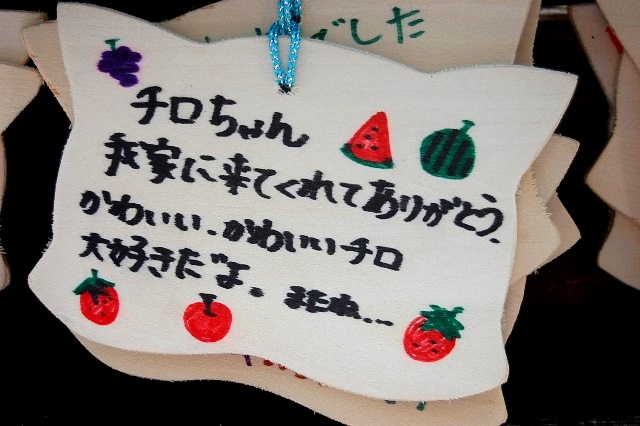 でした
チロちゃん
我家に来てくれてありがとう.
かわいい、かわいいチロ
大好きだよ. またね...